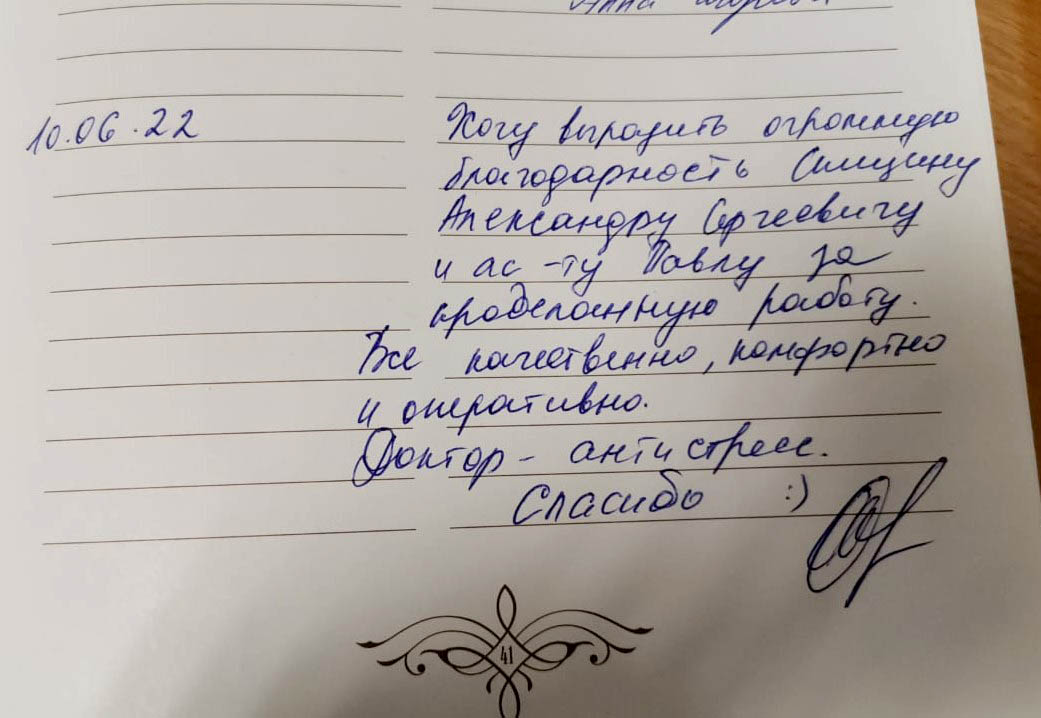 Анна
10.06.22
Хочу выразить огромную
благодарность
Александру Сергеевичу
и ас-ту Павлу за
проделанную работу.
Все качественно, комфортно
и оперативно.
Доктор - антистресс.
Спасибо :)
41